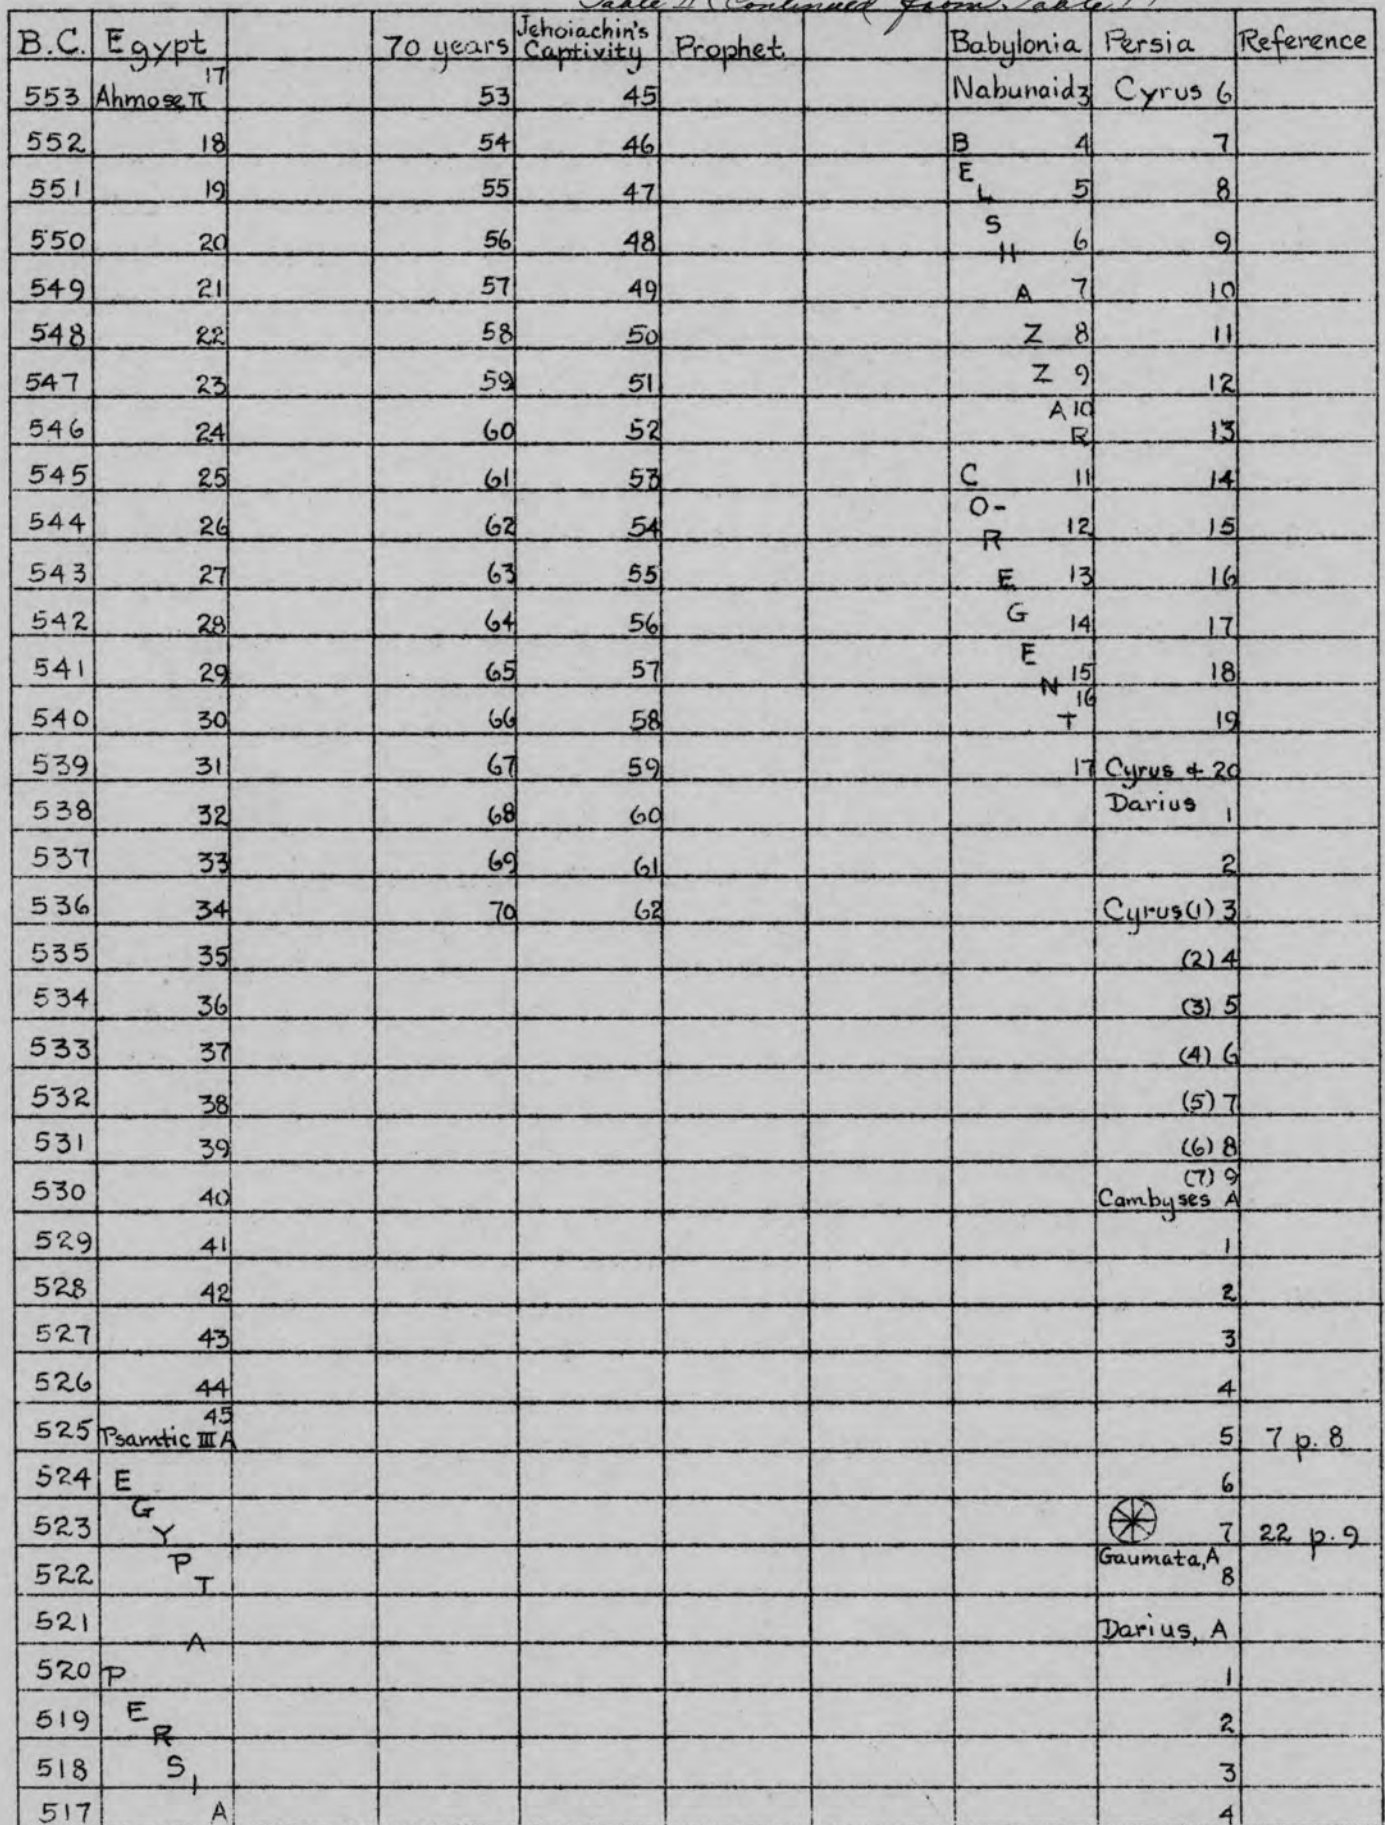 Table II (Continued from Table I)
B.C. Egypt 70 years Jehoiachin's Captivity Prophet Babylonia Persia Reference
553 Ahmose II 17 53 45 Nabunaid 3 Cyrus 6
552 18 54 46 B 4 7
551 19 55 47 E L 5 8
550 20 56 48 S H 6 9
549 21 57 49 A 7 10
548 22 58 50 Z 8 11
547 23 59 51 Z 9 12
546 24 60 52 A 10 R 13
545 25 61 53 C 11 14
544 26 62 54 O- R 12 15
543 27 63 55 E 13 16
542 28 64 56 G 14 17
541 29 65 57 E N 15 18
540 30 66 58 16 T 19
539 31 67 59 17 Cyrus & 20
538 32 68 60 Darius 1
537 33 69 61 2
536 34 70 62 Cyrus (1) 3
535 35 (2) 4
534 36 (3) 5
533 37 (4) 6
532 38 (5) 7
531 39 (6) 8
530 40 (7) 9 Cambyses A
529 41 1
528 42 2
527 43 3
526 44 4
525 45 Psamtic III A 5 7 p. 8
524 E 6
523 G Y 7 22 p. 9
522 P T Gaumata, A 8
521 A Darius, A
520 P 1
519 E R 2
518 S I 3
517 A 4